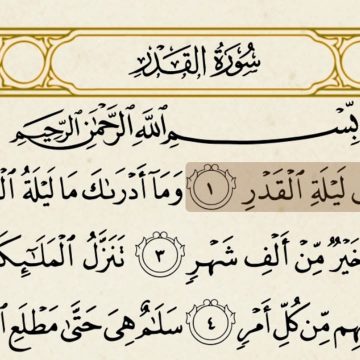 سُورَةُ القَدۡرِ
بِسۡمِ ٱللَّهِ ٱلرَّحۡمَٰنِ ٱلرَّحِيمِ
لَيۡلَةِ ٱلۡقَدۡرِ ١ وَمَآ أَدۡرَىٰكَ مَا لَيۡلَةُ
خَيۡرٞ مِّنۡ أَلۡفِ شَهۡرٖ ٣ تَنَزَّلُ
مِّن كُلِّ أَمۡرٖ ٤ سَلَٰمٌ هِيَ حَتَّىٰ مَطۡلَعِ